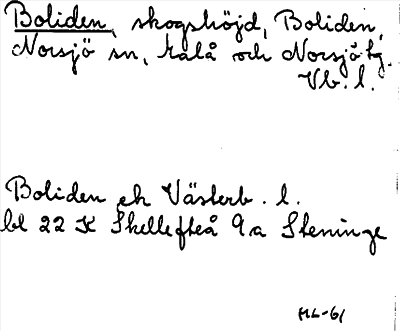 Boliden, skogshöjd, Boliden,
Norsjö sn, Malå och Norsjö tg.
Vb. l.
Boliden ek Västerb. l.
bl 22 K Skellefteå 9a Steninge
ML-61